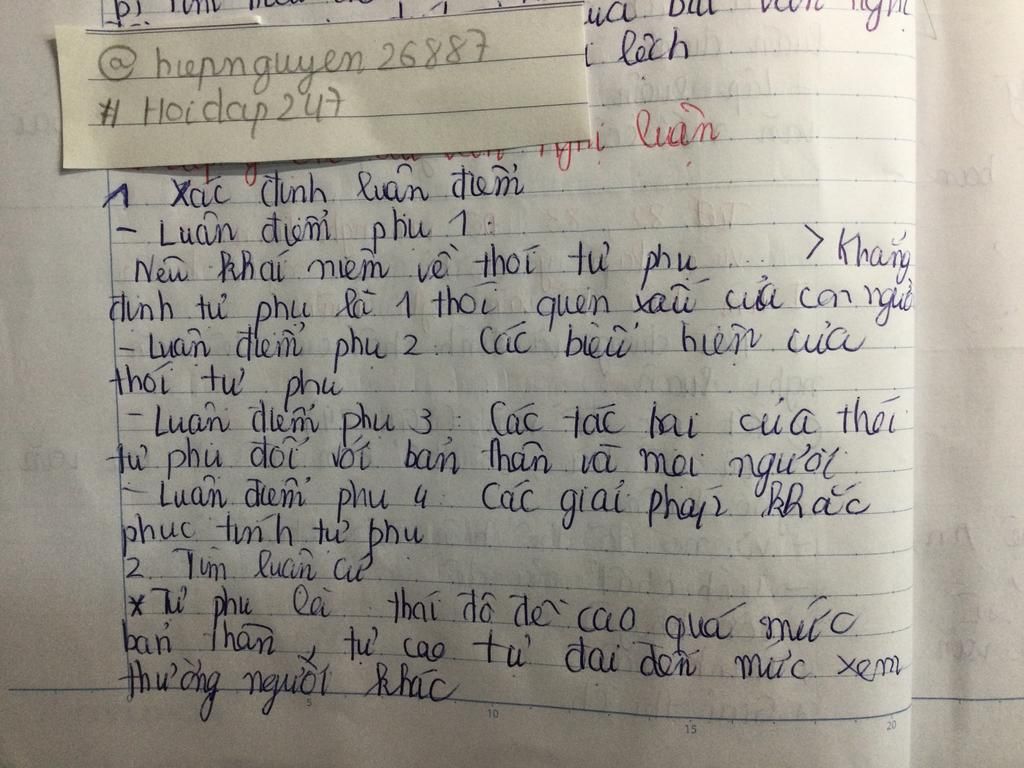 @ hiepnguyen26887
# Hoidap247
lệch
nghị luận
1 Xác định luận điểm
- Luận điểm phụ 1:
Nêu khái niệm về thói tự phụ ... > Khẳng
định tự phụ là 1 thói quen xấu của con người
- Luận điểm phụ 2. Các biểu hiện của
thói tự phụ
- Luận điểm phụ 3: Các tác hại của thói
tự phụ đối với bản thân và mọi người
- Luận điểm phụ 4. Các giải pháp khắc
phục tính tự phụ
2. Tìm luận cứ
* Tự phụ là thái độ đề cao quá mức
bản thân, tự cao tự đại đến mức xem
thường người khác
5
10
15
20